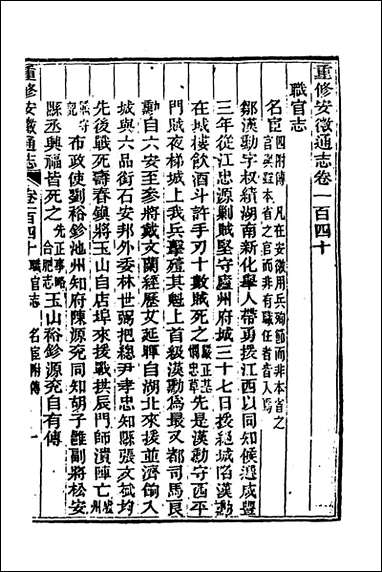 重修安徽通志卷一百四十
職官志
名宦四附傳 凡在安徽用兵殉節而非本省之
官與雖本省之官而非有職任者皆入焉
鄒漢勳字叔績湖南新化舉人帶勇援江西以同知候選咸豐
三年從江忠源剿賊堅守廬州府城三十七日援絕城陷漢勳
在城樓飲酒斗許手刃十數賊死之 先是漢勳守西平
門賊夜梯城上我兵擊殪其魁上首級漢勳為最又都司馬良
勳自六安至參將戴文蘭經歷艾延輝自湖北來援並濟餉入
城與六品街石安邦外委林世弼把總尹孝忠知縣張文斌均
先後戰死壽春鎮將玉山自店埠來援戰拱辰門師潰陣亡
布政使劉裕鉁池州知府陳源兖同知胡子雝副將松安
縣丞興福皆死之 先正事略 合肥志 玉山裕鉁源兖自有傳
重修安徽通志 卷一百四十 職官志 名宦附傳 一